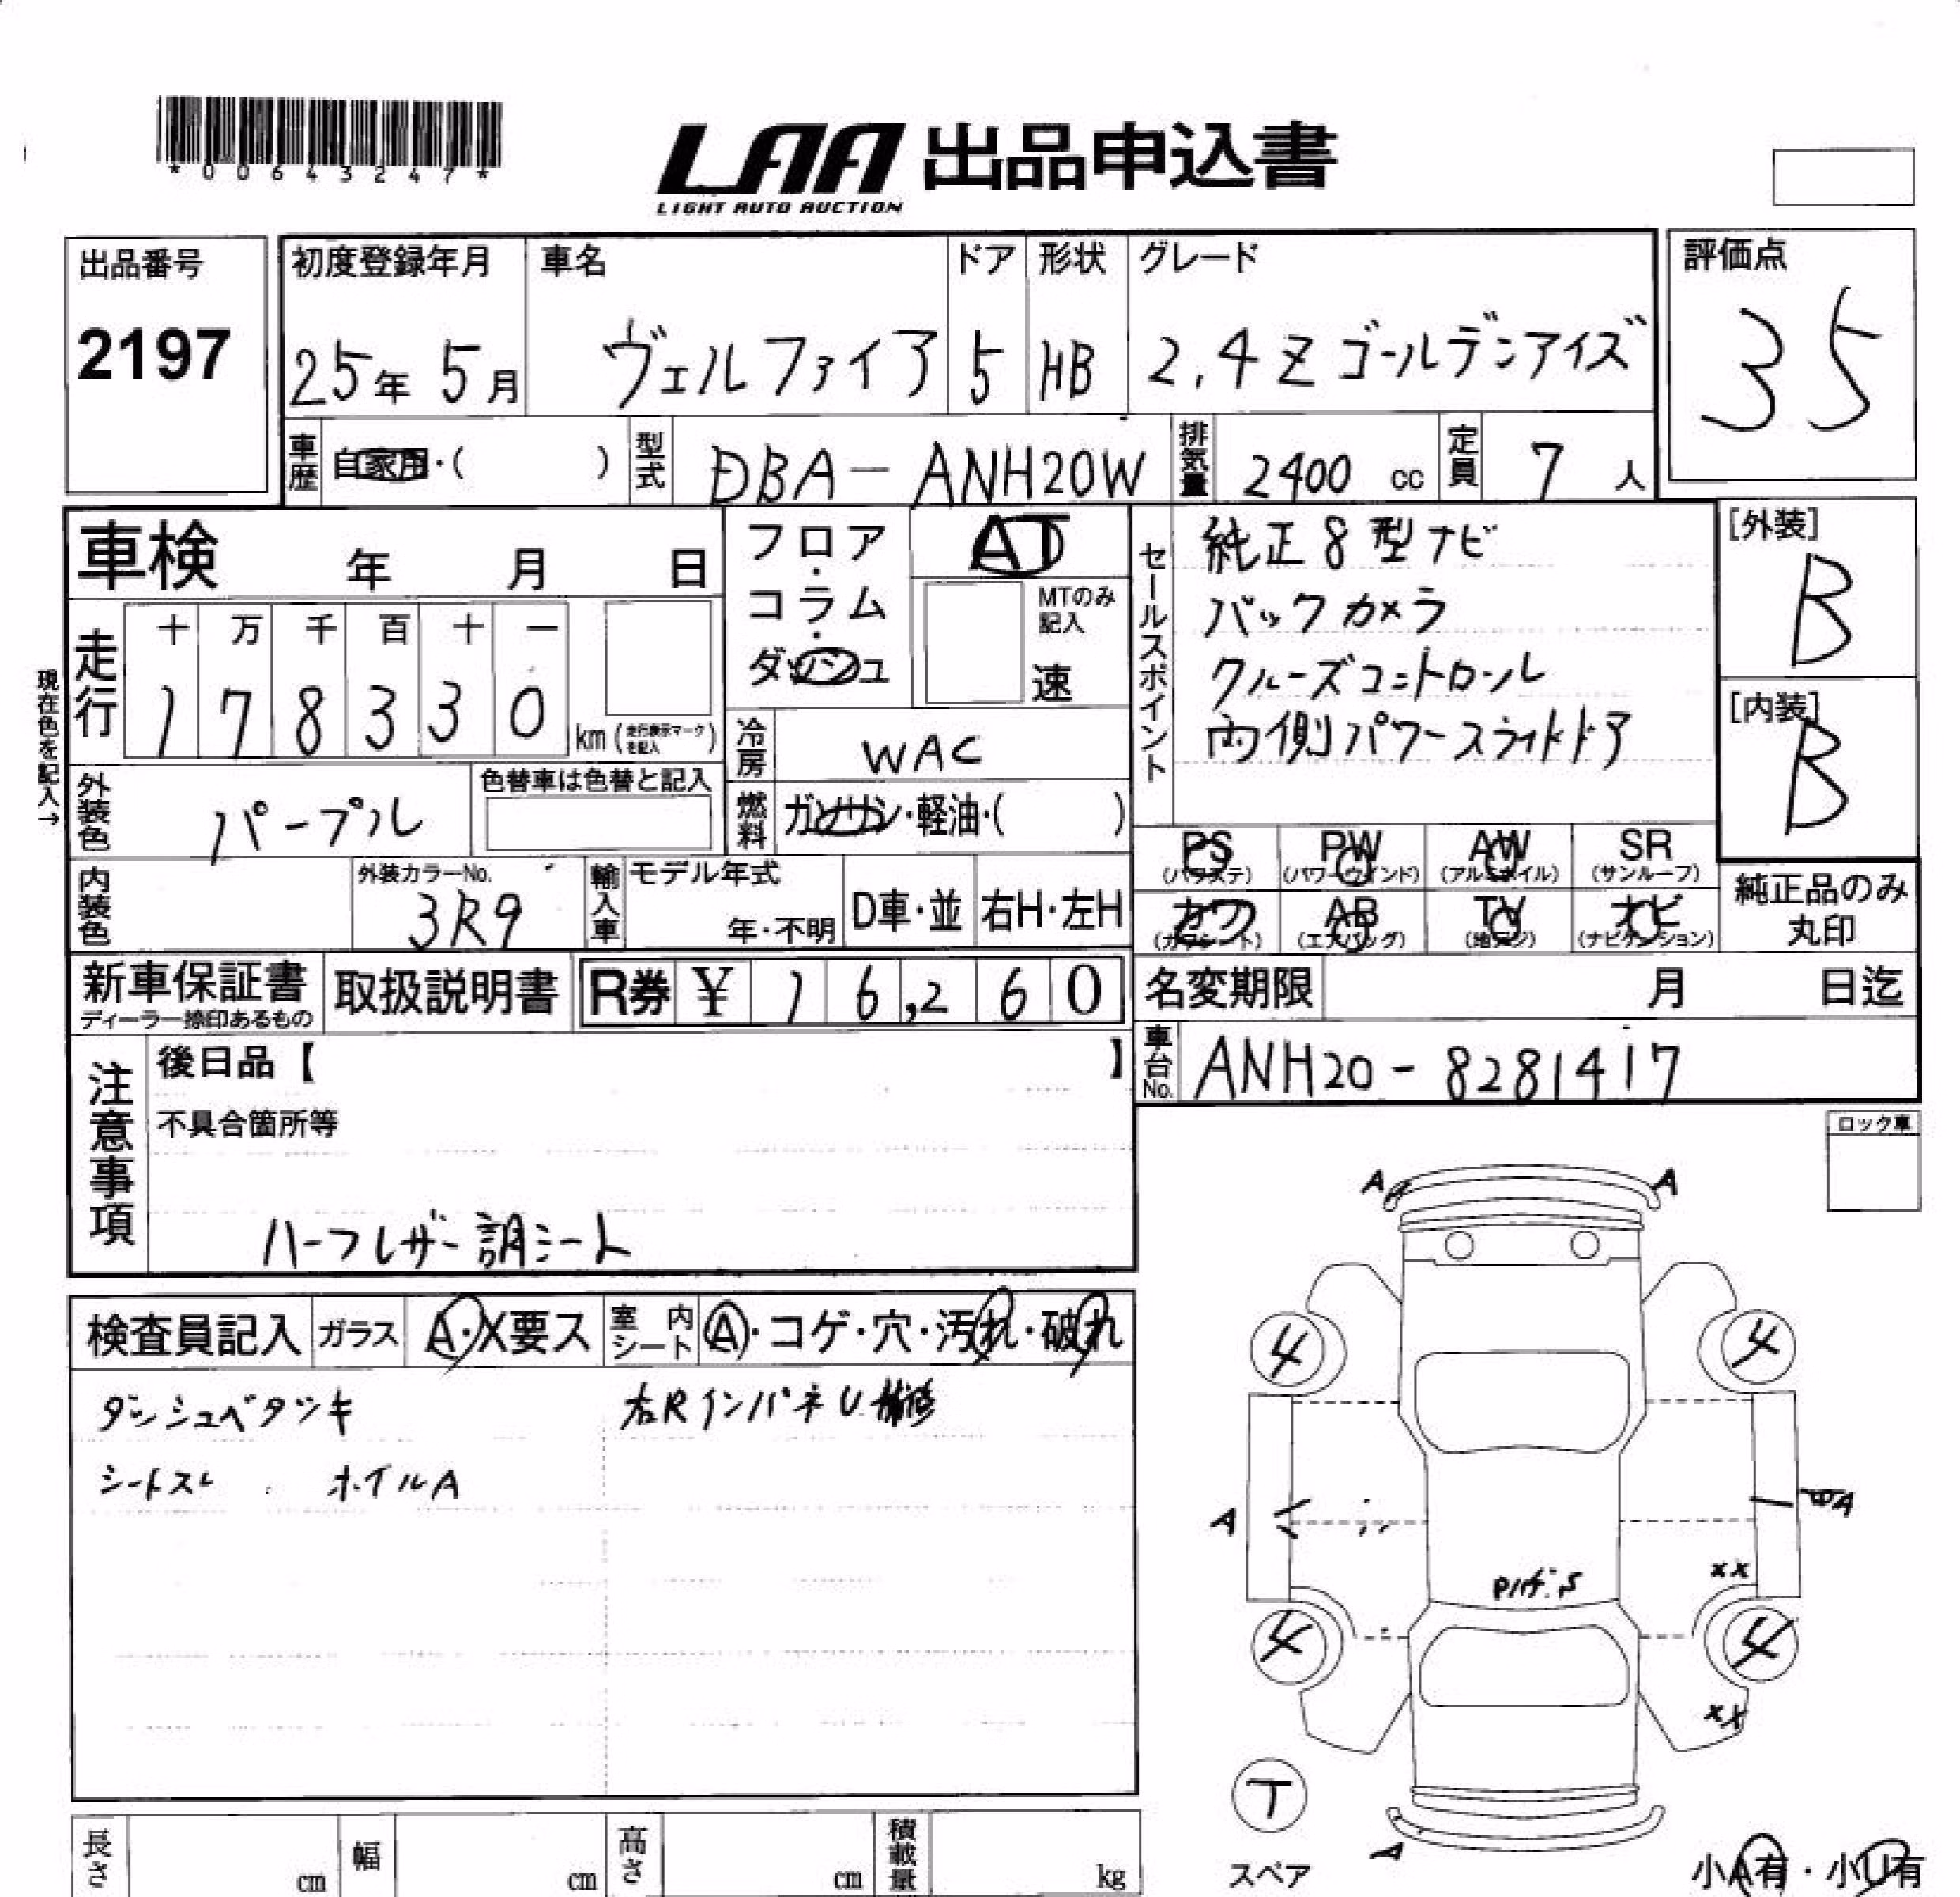 *00643247*
LAA 出品申込書
LIGHT AUTO AUCTION
出品番号
2197
初度登録年月
25年 5月
車名
ヴェルファイア
ドア
5
形状
HB
グレード
2.4Z ゴールデンアイズ
評価点
35
車歴
自家用・( )
型式
DBA-ANH20W
排気量
2400 cc
定員
7 人
車検 年 月 日
フロア・コラム・ダッシュ
AT
MTのみ記入
速
セールスポイント
純正8型ナビ
バックカメラ
クルーズコントロール
両側パワースライドドア
[外装]
B
[内装]
B
現在色を記入→
走行
十 万 千 百 十 一
1 7 8 3 3 0 km (走行表示マークを記入)
冷房
WAC
燃料
ガソリン・軽油・( )
外装色
パープル
色替車は色替と記入
内装色
外装カラーNo.
3R9
輸入車
モデル年式
年・不明
D車・並
右H・左H
PS (パワステ)
PW (パワーウィンド)
AW (アルミホイル)
SR (サンルーフ)
カワ (カワシート)
AB (エアバッグ)
TV (地デジ)
ナビ (ナビゲーション)
純正品のみ丸印
新車保証書
ディーラー捺印あるもの
取扱説明書
R券 ¥ 16,260
名変期限 月 日迄
車台No.
ANH20-8281417
注意事項
後日品【 】
不具合箇所等
ハーフレザー調シート
ロック車
検査員記入
ガラス
A・X要ス
室内シート
A・コゲ・穴・汚れ・破れ
ダッシュベタツキ
右RインパネU補修
シートスレ ホイルA
A A
4 4
A A
XX
4 4
XX
T
スペア
A
小A有・小U有
長さ cm
幅 cm
高さ cm
積載量 kg